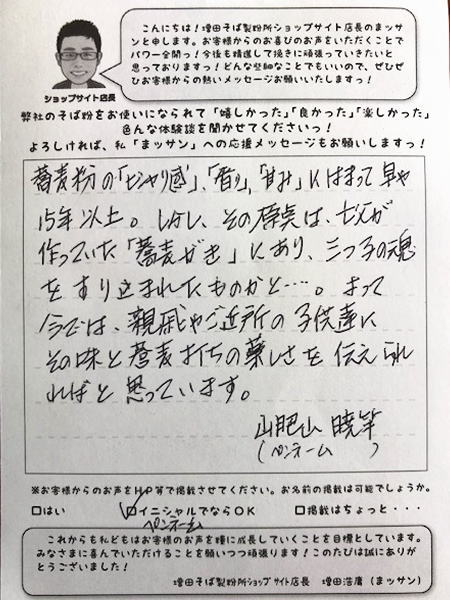 こんにちは！増田そば製粉所ショップサイト店長のまッサ
ンと申します。お客様からのお喜びのお声をいただくことで
パワー全開っ！今後も精進して挽きに頑張っていきたいと
思っておりますっ！どんな些細なことでもいいので、ぜひぜ
ひお客様からの熱いメッセージお願いいたしますっ！
ショップサイト店長
弊社のそば粉をお使いになられて「嬉しかった」「良かった」「楽しかった」
色んな体験談を聞かせてくださいっ！
よろしければ、私「まッサン」への応援メッセージもお願いしますっ！
蕎麦粉の「シャリ感」、「香り」、「甘み」にはまって早や
15年以上。しかし、その原点は、父が
作っていた「蕎麦がき」にあり、三つ子の魂
をすり込まれたものかと…。よって
今では、親戚やご近所の子供達に
その味と蕎麦打ちの楽しさを伝えられ
ればと思っています。
山肥山 暁竿
(ペンネーム)
※お客様からのお声をHP等で掲載させてください。お名前の掲載は可能でしょうか。
□はい □イニシャルでならOK □掲載はちょっと・・・
ペンネーム
これからも私どもはお客様のお声を糧に成長していくことを目標としています。
みなさまに喜んでいただけることを願いつつ頑張ります！このたびは誠にありが
とうございました！
増田そば製粉所ショップサイト店長 増田浩庸（まッサン）